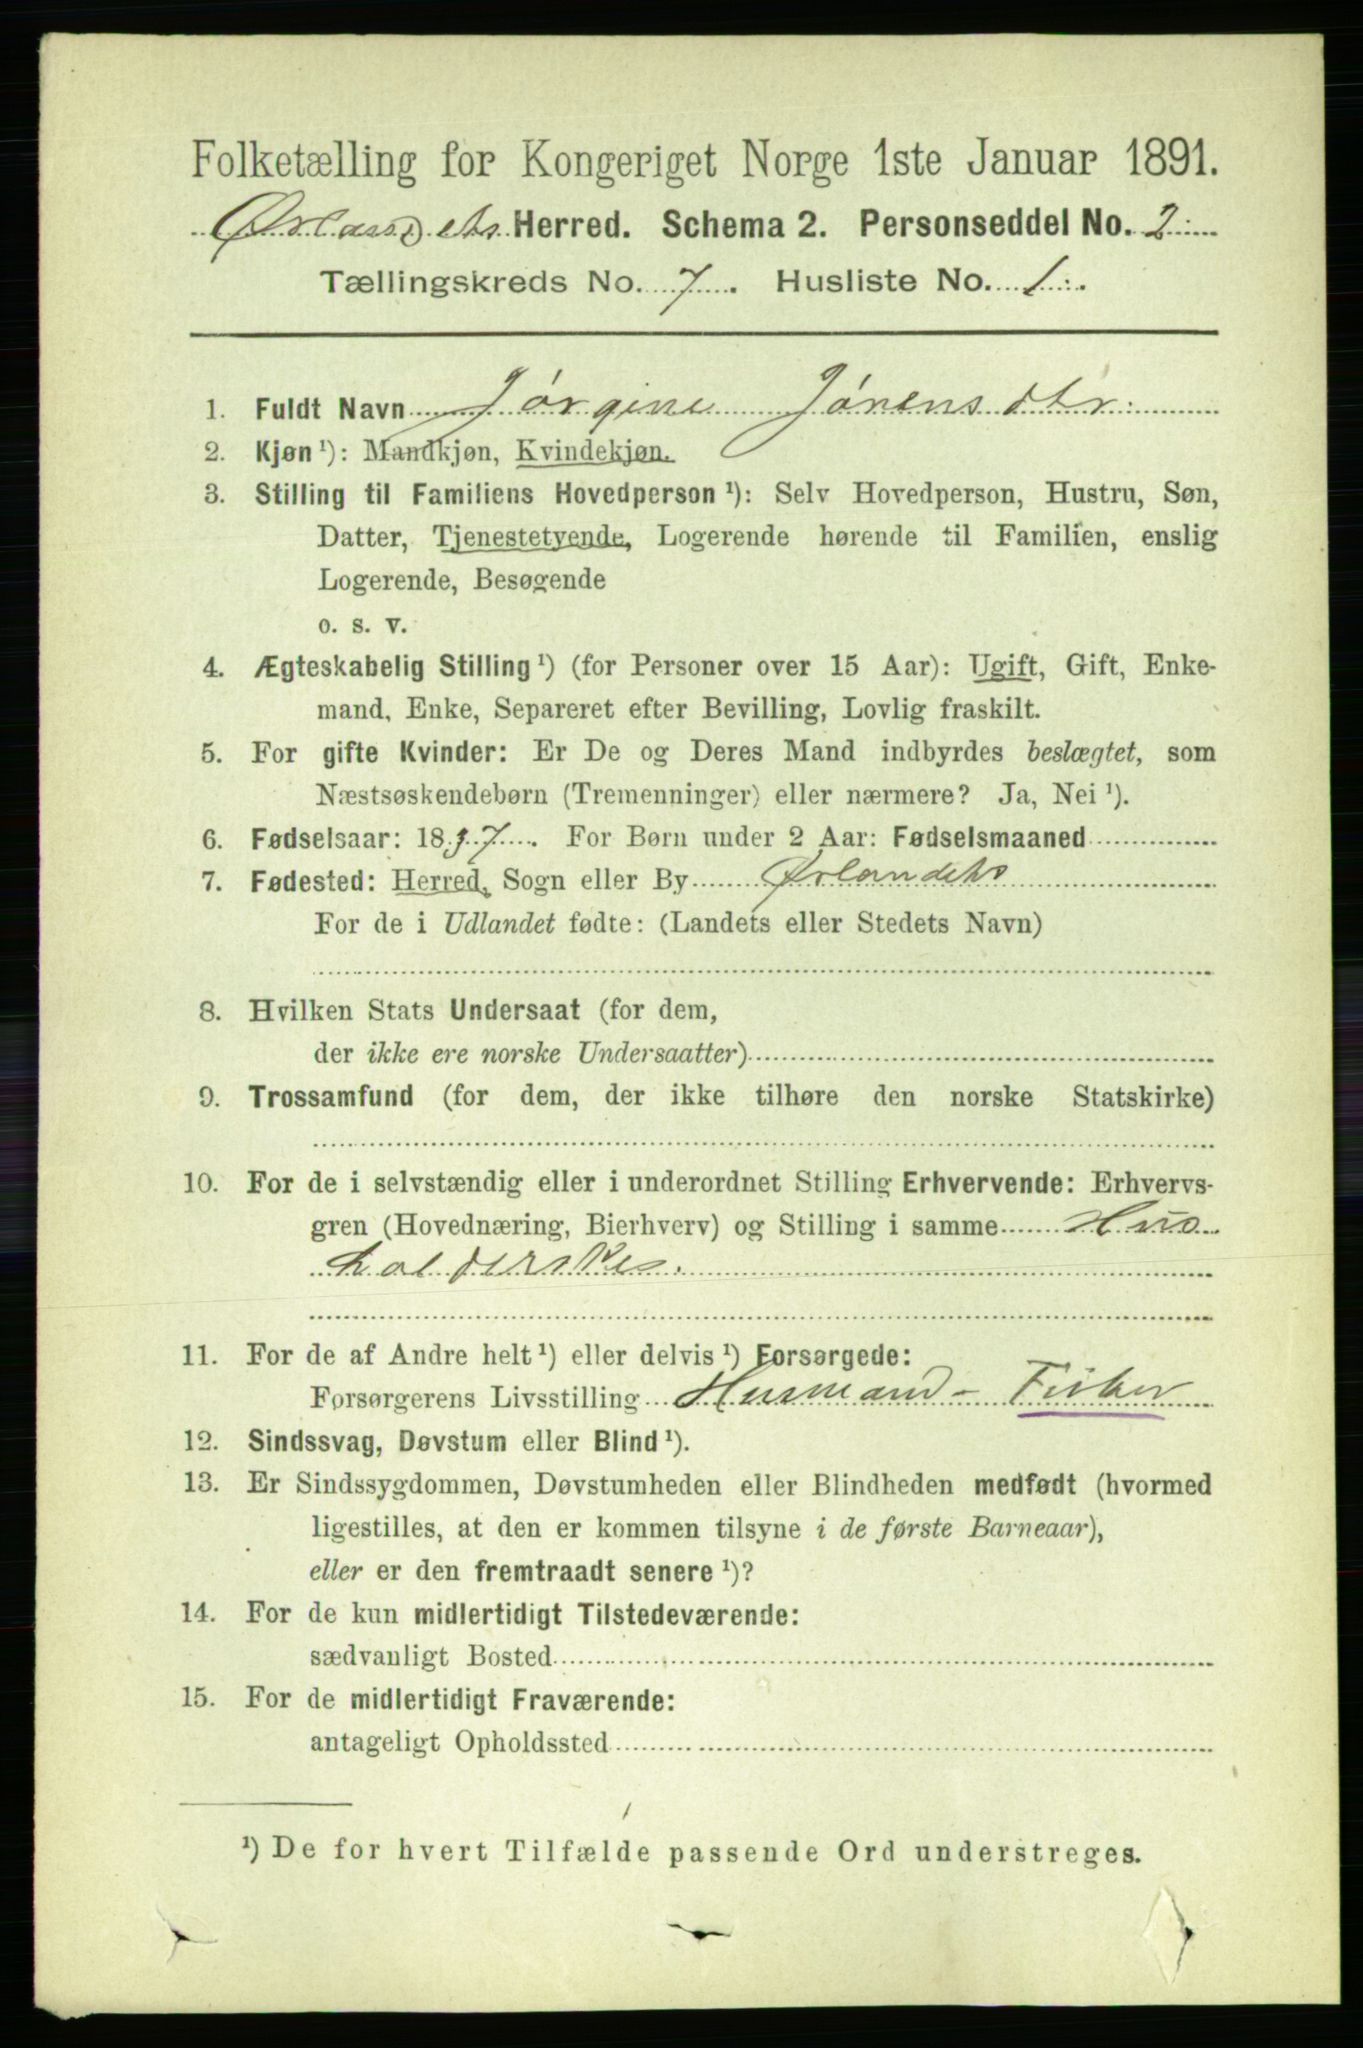 Folketælling for Kongeriget Norge 1ste Januar 1891.
Ørlandets Herred. Schema 2. Personseddel No. 2
Tællingskreds No. 7. Husliste No. 1.
1. Fuldt Navn Jørgine Jørensdtr.
2. Kjøn ¹): Mandkjøn, Kvindekjøn.
3. Stilling til Familiens Hovedperson ¹): Selv Hovedperson, Hustru, Søn,
Datter, Tjenestetyende, Logerende hørende til Familien, enslig
Logerende, Besøgende
o. s. v.
4. Ægteskabelig Stilling ¹) (for Personer over 15 Aar): Ugift, Gift, Enke-
mand, Enke, Separeret efter Bevilling, Lovlig fraskilt.
5. For gifte Kvinder: Er De og Deres Mand indbyrdes beslægtet, som
Næstsøskendebørn (Tremenninger) eller nærmere? Ja, Nei ¹).
6. Fødselsaar: 1837. For Børn under 2 Aar: Fødselsmaaned
7. Fødested: Herred, Sogn eller By Ørlandets
For de i Udlandet fødte: (Landets eller Stedets Navn)
8. Hvilken Stats Undersaat (for dem,
der ikke ere norske Undersaatter)
9. Trossamfund (for dem, der ikke tilhøre den norske Statskirke)
10. For de i selvstændig eller i underordnet Stilling Erhvervende: Erhvervs-
gren (Hovednæring, Bierhverv) og Stilling i samme Hus
holderske.
11. For de af Andre helt ¹) eller delvis ¹) Forsørgede:
Forsørgerens Livsstilling Husmand - Fisker
12. Sindssvag, Døvstum eller Blind ¹).
13. Er Sindssygdommen, Døvstumheden eller Blindheden medfødt (hvormed
ligestilles, at den er kommen tilsyne i de første Barneaar),
eller er den fremtraadt senere ¹)?
14. For de kun midlertidigt Tilstedeværende:
sædvanligt Bosted
15. For de midlertidigt Fraværende:
antageligt Opholdssted
¹) De for hvert Tilfælde passende Ord understreges.